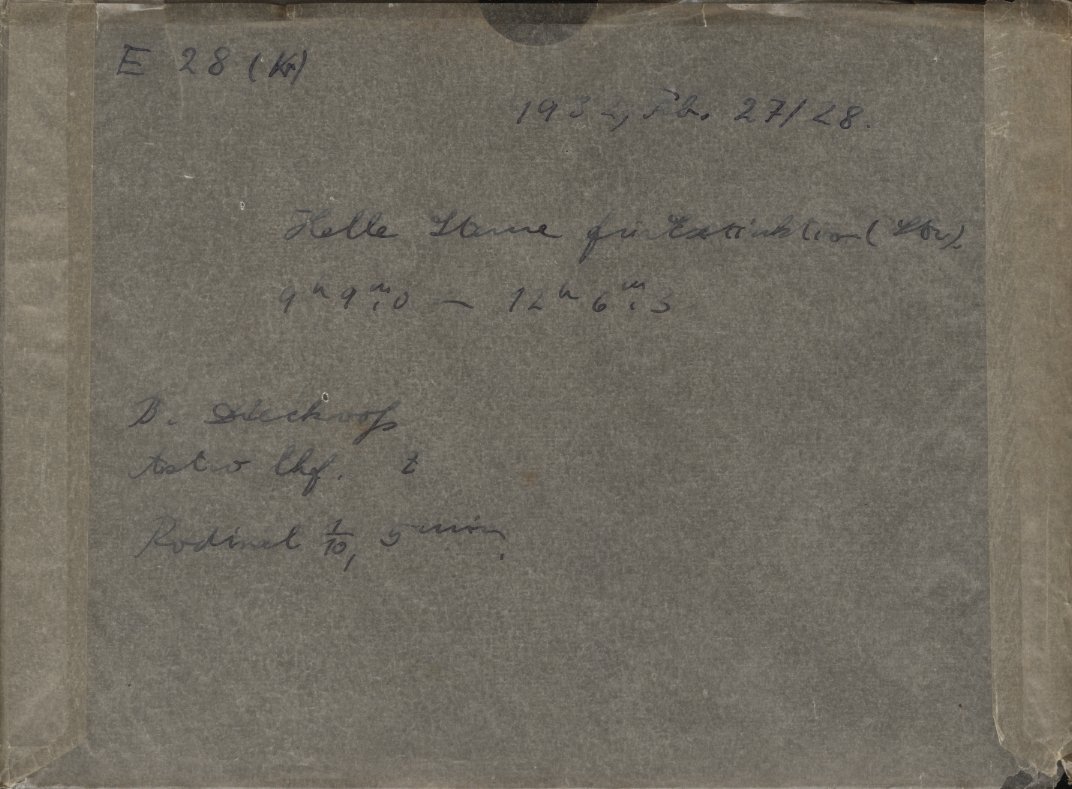 E 28 (Kr)
1932, Feb. 27/28.
Helle Sterne für Extinktion
9ʰ 9ᵐ.0 — 12ʰ 6ᵐ.3
B. Dieckvoß
Astro
Rodinal 1/10, 5 min.